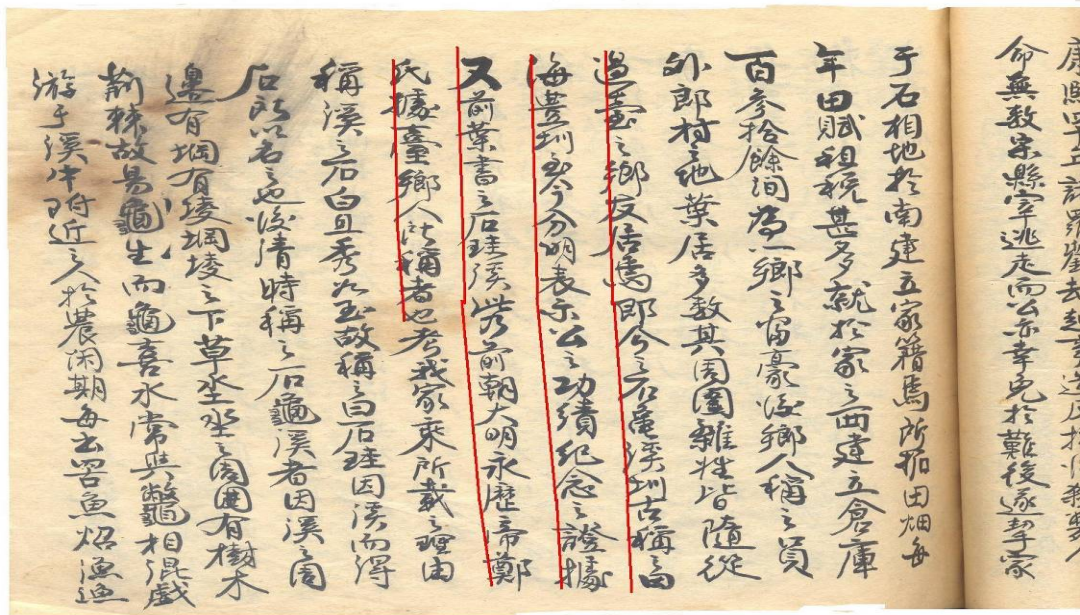 命無数宗縣宰逃走而公亦幸免於難後遂挈家
于石相地於南建立家籍焉所拓田畑每
年田賦租稅甚多就於家之西建立倉庫
百參拾餘洞為一鄉之富豪後鄉人稱之員
外郎村之地葉居多数其周圍雜姓皆隨從
過臺之鄉友居焉即今之石龜溪圳古稱為
海豊圳至今分明表示公之功績紀念之證據
又前葉書之石珪溪凿前朝大明永歷帝鄭
氏據臺鄉人所稱者也考我家乘所載之理由
稱溪之石白且秀如玉故稱之曰石珪因溪而得
石所以名之也後清時稱之石龜溪者因溪之周
邊有堈有堎堈堎之下草坔坔之周圍有樹木
荊棘故易龜生而龜喜水常與鼈龜相混戲
游于溪中附近之人於農閑期每出罟魚炤漁漁